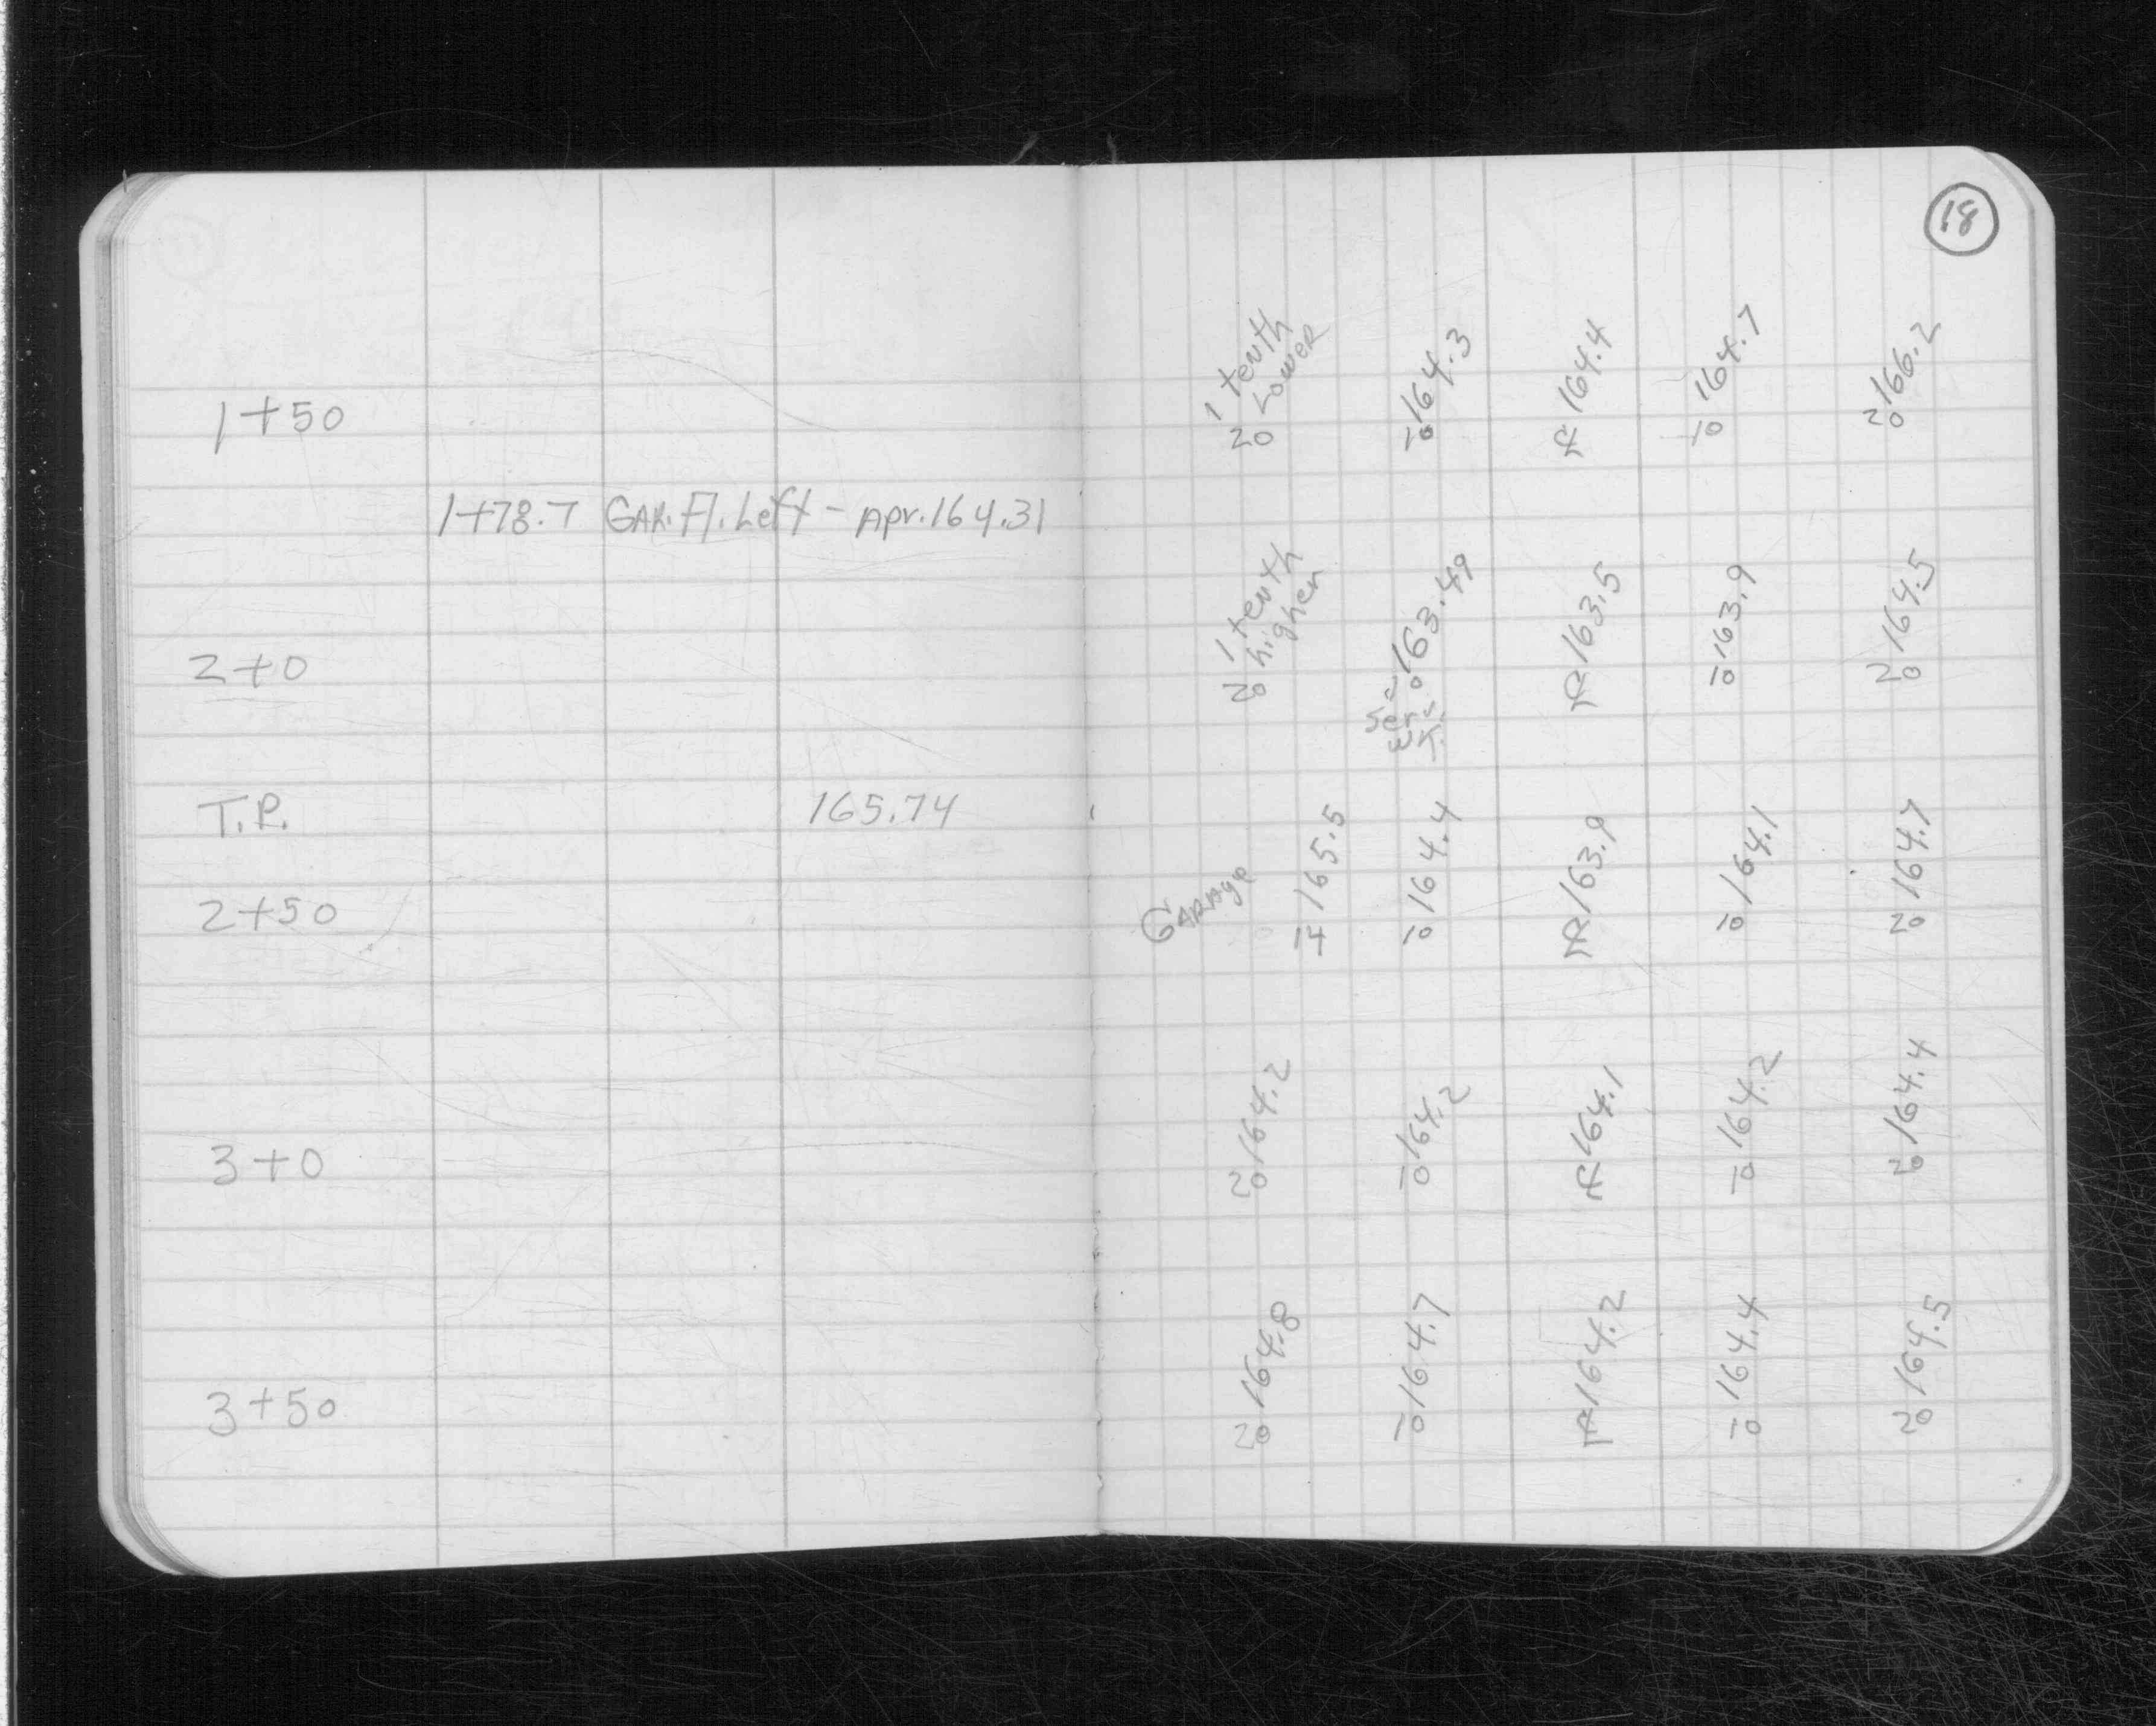 18
1+50
1 tenth Lower 20
164.3 10
℄ 164.4
164.7 10
166.2 20
1+78.7 GAR. Fl. Left - Apr. 164.31
2+0
1 tenth higher 20
163.49 10
℄ 163.5
163.9 10
164.5 20
T.P. 165.74
2+50
GARAge
165.5 14
164.4 10
℄ 163.9
164.1 10
164.7 20
3+0
164.2 20
164.2 10
℄ 164.1
164.2 10
164.4 20
3+50
164.8 20
164.7 10
℄ 164.2
164.4 10
164.5 20